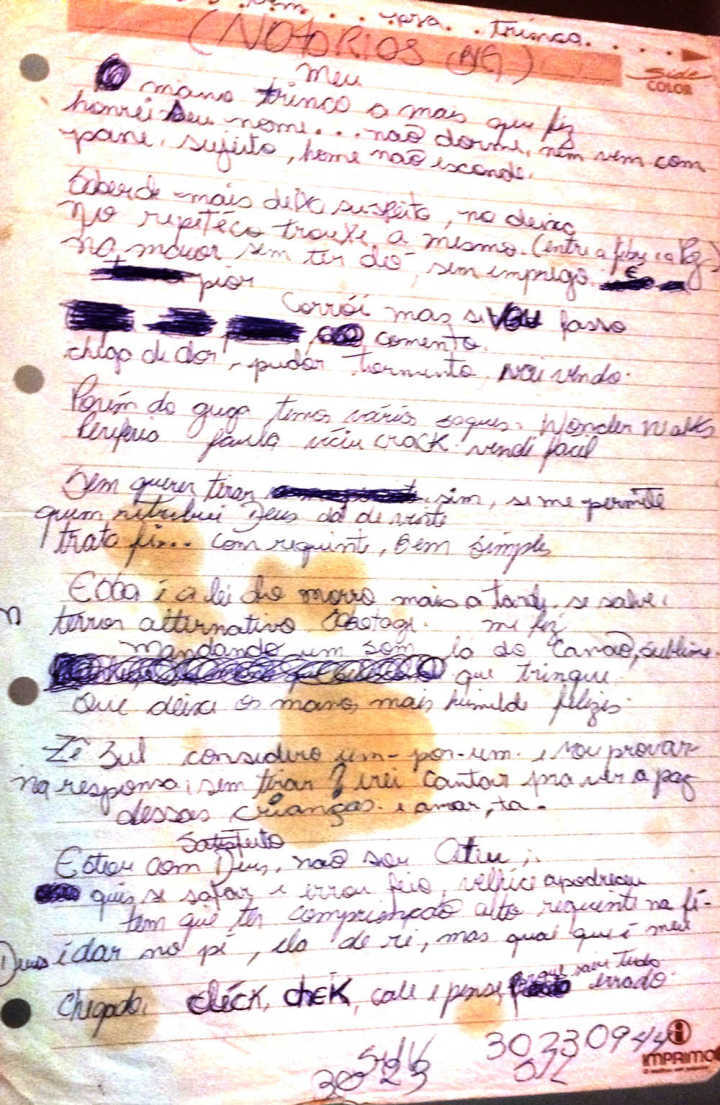 vem . . para . . trinca. . . .
(NOTORIOS BIG)
Side COLOR
meu
O mano trinco a mais que fiz
honrei seu nome... não dorme, nem vem com
pane, sujeito, home não esconde.
mais deixa suspeito, na deixa
No repetéco trouxe a mesma. (entre a febre e a
na maior sem ter dó, sem emprego. E
pior
Corrói mas se vou passo
comento.
chega de dor, pudor tormento, vou vendo.
Porém do guga temos vários saques. Wonder Walks
Periferia paula viciu crack vendi facil
Sem querer tirar sim, si me permite
quem retribui Deus dá de vinte
trato fi... com requinte, bem simples
Essa é a lei do morro mais a tarde, se salve:
terror alternativo Sabotage. me fez
mandando um som la do Canão, sublime.
que tringue
Que deixa os manos mais humilde felizes.
Zé Sul considero um-por-um. e vou provar
na responsa, sem tirar irei cantar pra ver a paz
dessas crianças. e amar, ta.
Satisfeito
Estou com Deus, não sou Ateu,
quis se safar e errou feio, velhice apodreceu
tem que ter compriençado alto requente na fi-
Deus idar no pé, ela de ré, mas qual que é meu
Chegado. cléck, chek, cale e pense, saiu tudo
errado.
30330944
3023
IMPRIMO